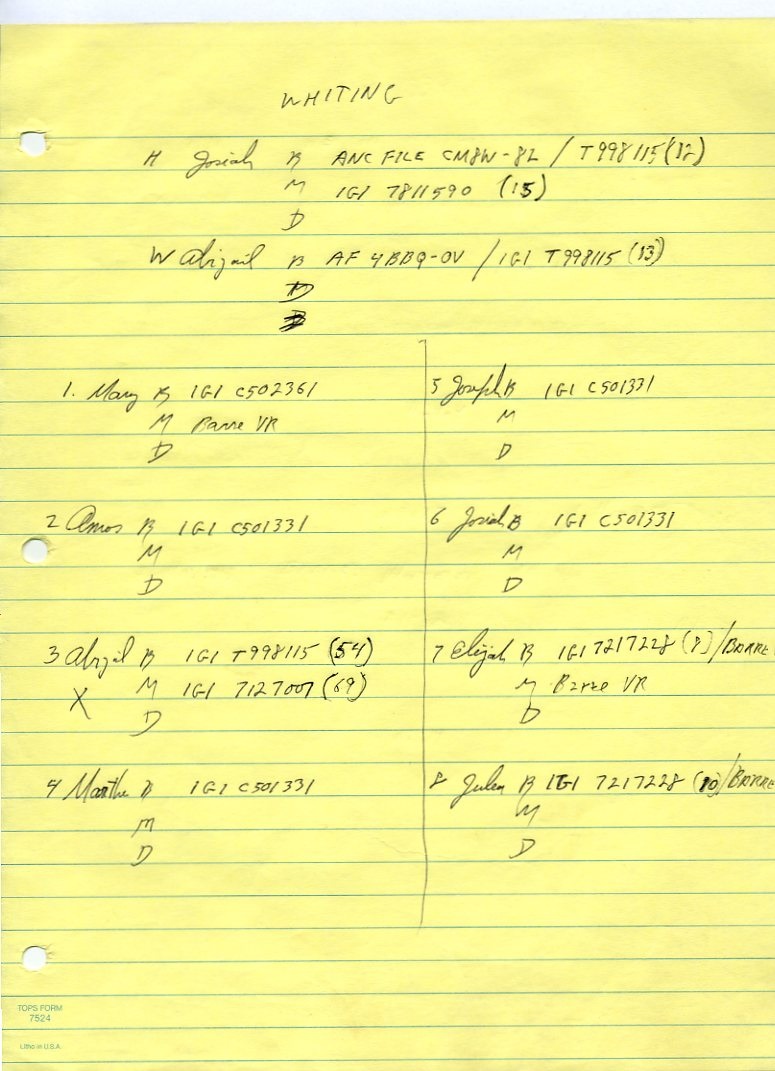 WHITING
H Josiah B ANC FILE CM8W-8L / T998115 (12)
M IGI 7811590 (15)
D
W Abigail B AF 4BBQ-0V / IGI T998115 (13)
1. Mary B IGI C502361
M Barre VR
D
2 Amos B IGI C501331
M
D
3 Abigail B IGI T998115 (54)
X M IGI 7127007 (69)
D
4 Martha B IGI C501331
M
D
5 Joseph B IGI C501331
M
D
6 Josiah B IGI C501331
M
D
7 Elijah B IGI 7217228 (8) / BARRE
M Barre VR
D
8 B IGI 7217228 (10) / BARRE
M
D
TOPS FORM
7524
Litho in U.S.A.